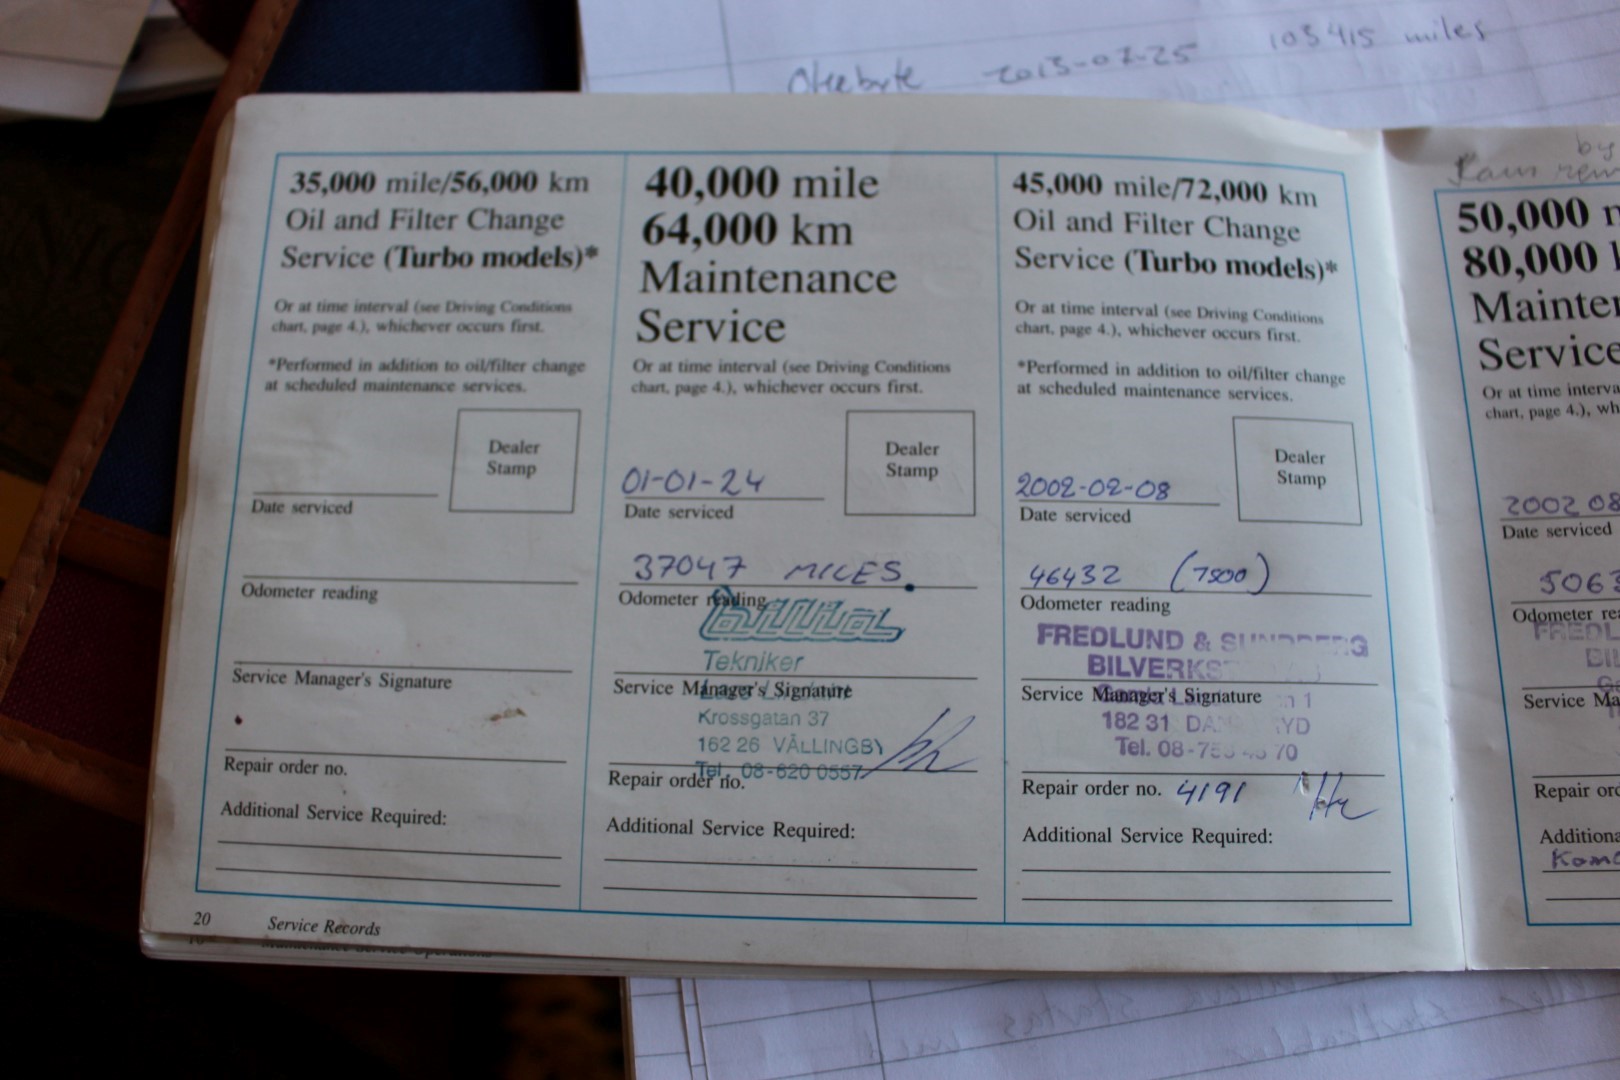 2013-07-25 103415 miles
35,000 mile/56,000 km
Oil and Filter Change
Service (Turbo models)*
Or at time interval (see Driving Conditions
chart, page 4.), whichever occurs first.
*Performed in addition to oil/filter change
at scheduled maintenance services.
Dealer
Stamp
Date serviced
Odometer reading
Service Manager's Signature
Repair order no.
Additional Service Required:
40,000 mile
64,000 km
Maintenance
Service
Or at time interval (see Driving Conditions
chart, page 4.), whichever occurs first.
Dealer
Stamp
01-01-24
Date serviced
37047 MILES
Odometer reading
Tekniker
Service Manager's Signature
Krossgatan 37
162 26 VÄLLINGBY
Tel. 08-620 0557
Repair order no.
Additional Service Required:
45,000 mile/72,000 km
Oil and Filter Change
Service (Turbo models)*
Or at time interval (see Driving Conditions
chart, page 4.), whichever occurs first.
*Performed in addition to oil/filter change
at scheduled maintenance services.
Dealer
Stamp
2002-02-08
Date serviced
46432 (7500)
Odometer reading
FREDLUND &
Service Manager's Signature
182 31
Tel. 08-
Repair order no. 4191
Additional Service Required:
by
50,000
80,000
Service
Or at time
chart, page 4.),
2002 08
Date serviced
Odometer
Service
Repair
20 Service Records